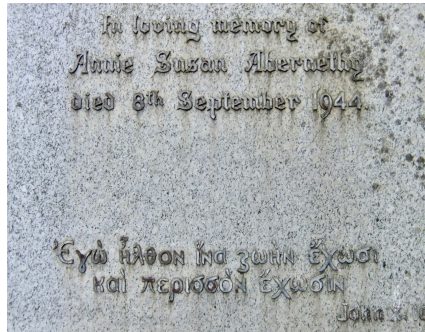 In loving memory of
Annie Susan Abernethy
died 8th September 1944.
Ἐγὼ ἦλθον ἵνα ζωὴν ἔχωσι,
καὶ περισσὸν ἔχωσιν
John